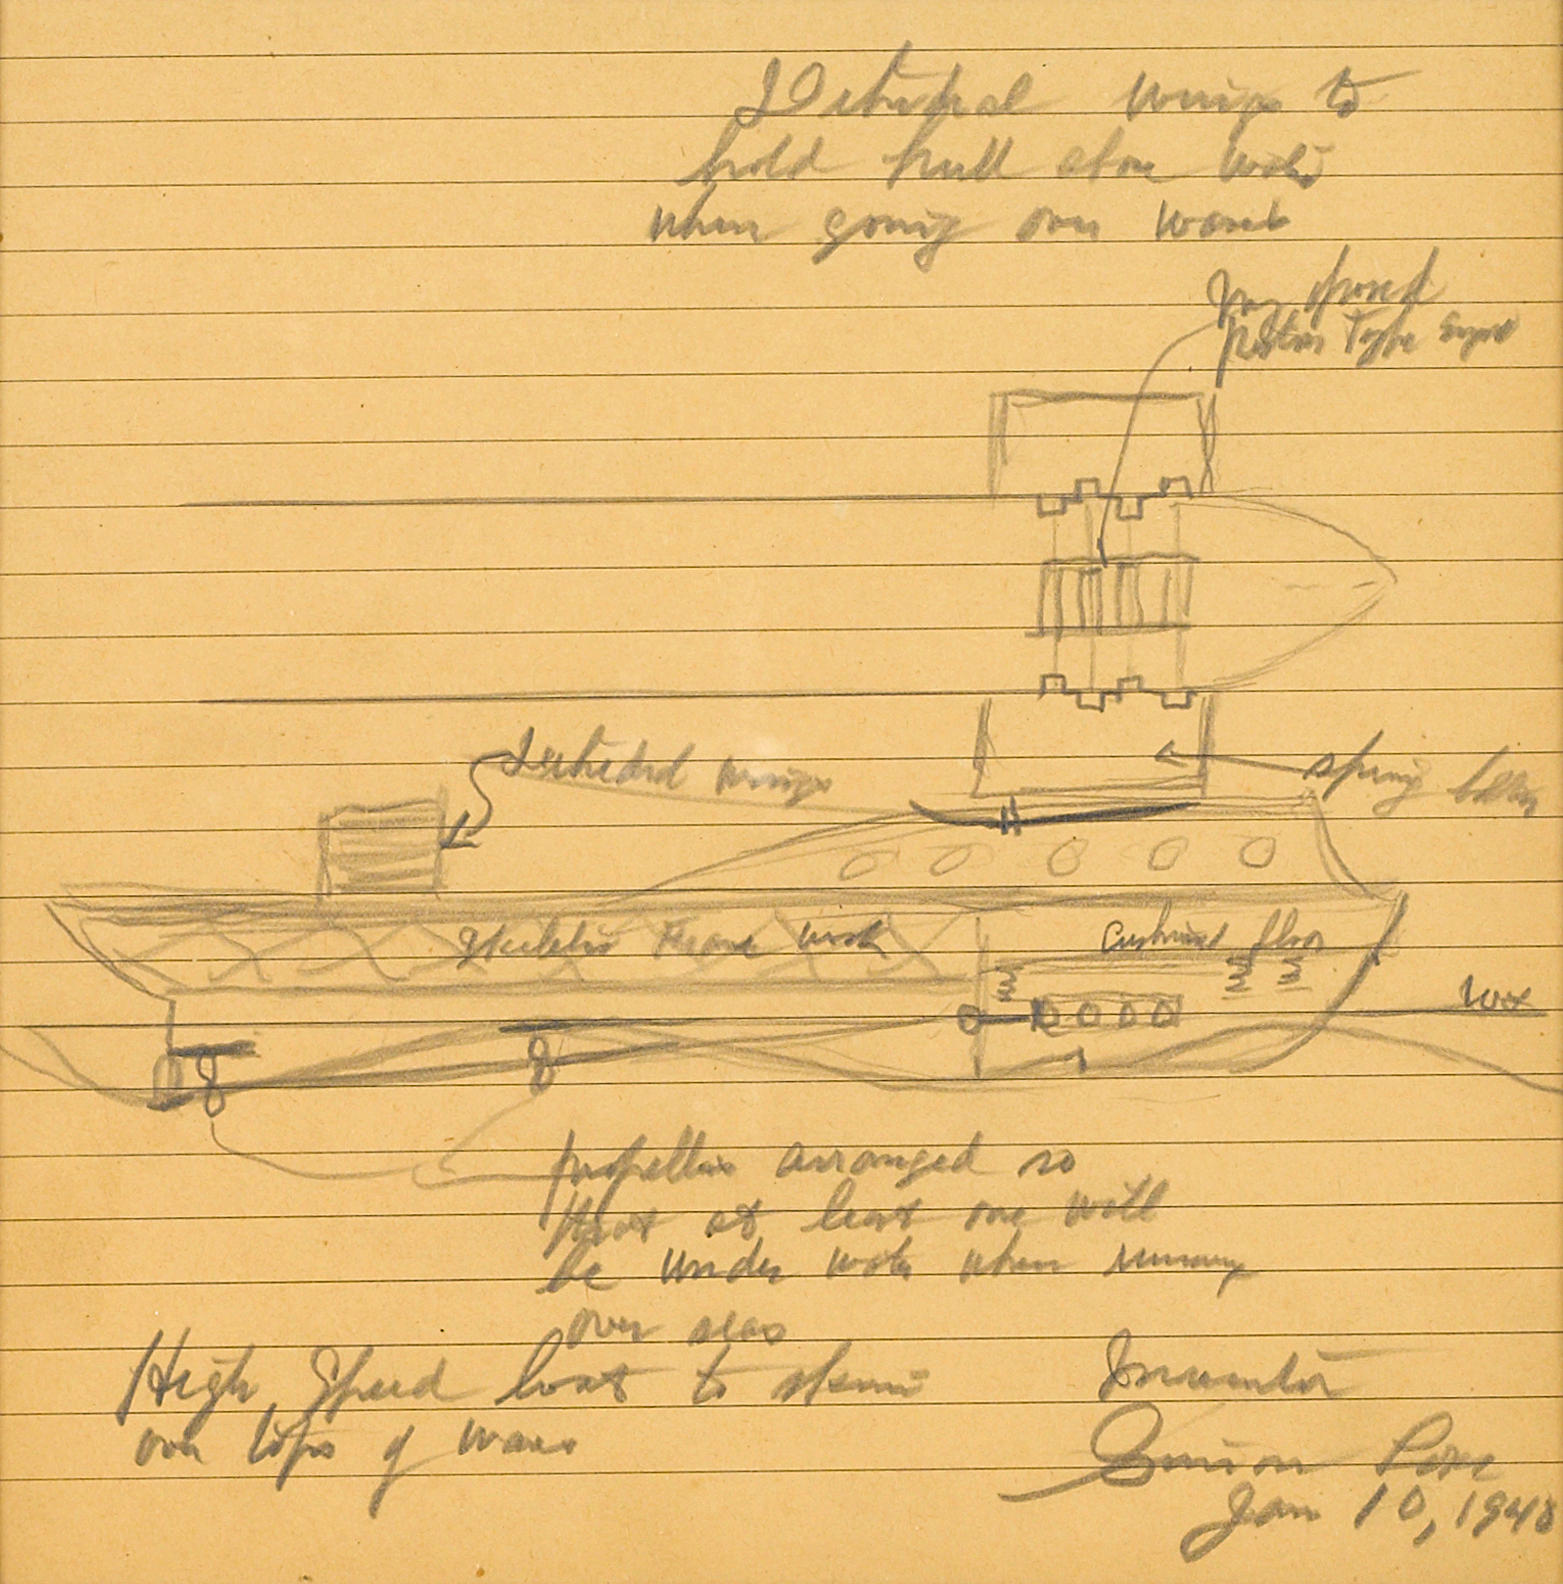 Dihedral wings to
hold hull above water
when going over waves
opposed
piston type
Dihedral wings
spring
Frame work
Cushioned floor
propellers arranged so
that at least one will
be under water when running
over seas
High Speed boat to skim
over tops of waves
Inventor
Simon Lake
Jan 10, 1940